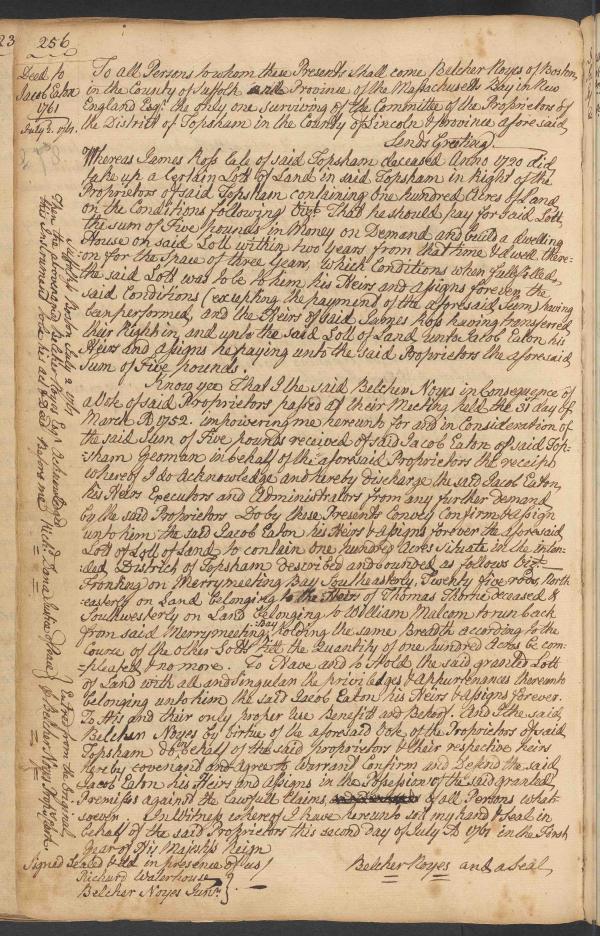 23
256
Deed to
Jacob Eaton
1761
July 2. 1761.
To all Persons to whom these Presents shall come, Belcher Noyes of Boston,
in the County of Suffolk and Province of the Massachusetts Bay in New
England Esqr. the only one surviving of the Committee of the Proprietors of
the District of Topsham in the County of Lincoln & Province aforesaid,
Sends Greeting.
Whereas James Ross late of said Topsham deceased Anno 1720 did
take up a Certain Lott of Land in said Topsham in Right of the
Proprietors of said Topsham containing one hundred Acres of Land
on the Conditions following Vizt. That he should pay for said Lott
the sum of Five pounds in Money on Demand and build a dwelling
House on said Lott within two Years from that time & dwell there=
=on for the Space of three Years, which Conditions when fullfilled,
the said Lott was to be to him his Heirs and assigns forever, the
said Conditions (excepting the payment of the aforesaid Sum) having
been performed, and the Heirs of said James Ross having transferred
their Right in, and unto the said Lott of Land unto Jacob Eaton his
Heirs and assigns he paying unto the said Proprietors the aforesaid
Sum of Five pounds.
Know yee That I the said Belcher Noyes in Consequence of
a Vote of said Proprietors passed at their Meeting held the 31 day of
March AD 1752. impowering me hereunto for and in Consideration of
the said Sum of Five pounds received of said Jacob Eaton of said Top=
=sham Yeoman in behalf of the aforesaid Proprietors the receipt
whereof I do Acknowledge and hereby discharge the said Jacob Eaton,
his Heirs Executors and Administrators from any further Demand
by the said Proprietors Do by these Presents Convey Confirm & assign
unto him the said Jacob Eaton his Heirs & assigns forever the aforesaid
Lott of Lott of Land to contain one hundred Acres situate in the inten=
=ded District of Topsham described and bounded as follows Vizt.
Fronting on Merrymeeting Bay Southeasterly, Twenty five rods, North
=easterly on Land belonging to the Heirs of Thomas Thorne deceased &
Southwesterly on Land belonging to William Malcom to run back
from said Merrymeeting Bay holding the same Breadth according to the
Course of the other Lotts till the Quantity of one hundred Acres be com=
=pleated & no more. To Have and to Hold the said granted Lott
of Land with all and Singular the priviledges & appurtenances thereunto
belonging unto him the said Jacob Eaton his Heirs & assigns forever.
To His and their only proper Use Benefitt and Behoof. And I the said
Belcher Noyes by Virtue of the aforesaid Vote of the Proprietors of said
Topsham do in behalf of the said proprietors & their respective heirs
hereby covenant and Agree to Warrant Confirm and Defend the said
Jacob Eaton his Heirs and Assigns in the Possession of the said granted
Premisses against the Lawfull Claims & all Persons what=
soever. In Witness whereof I have hereunto set my hand & Seal in
behalf of the said Proprietors this second day of July AD 1761 in the First
Year of His Majestys Reign
Signed Sealed & dd in presence of us
Richard Waterhouse
Belcher Noyes Junr.
Belcher Noyes and a Seal
Suffolk ss Boston July 2 1761
Then the abovenamed Belcher Noyes Esqr. Acknowledged
this Instrument to be his act & Deed Before me Richd. Dana Justice of Peace
Entred from the Original
p Belcher Noyes Propr. Clerk.